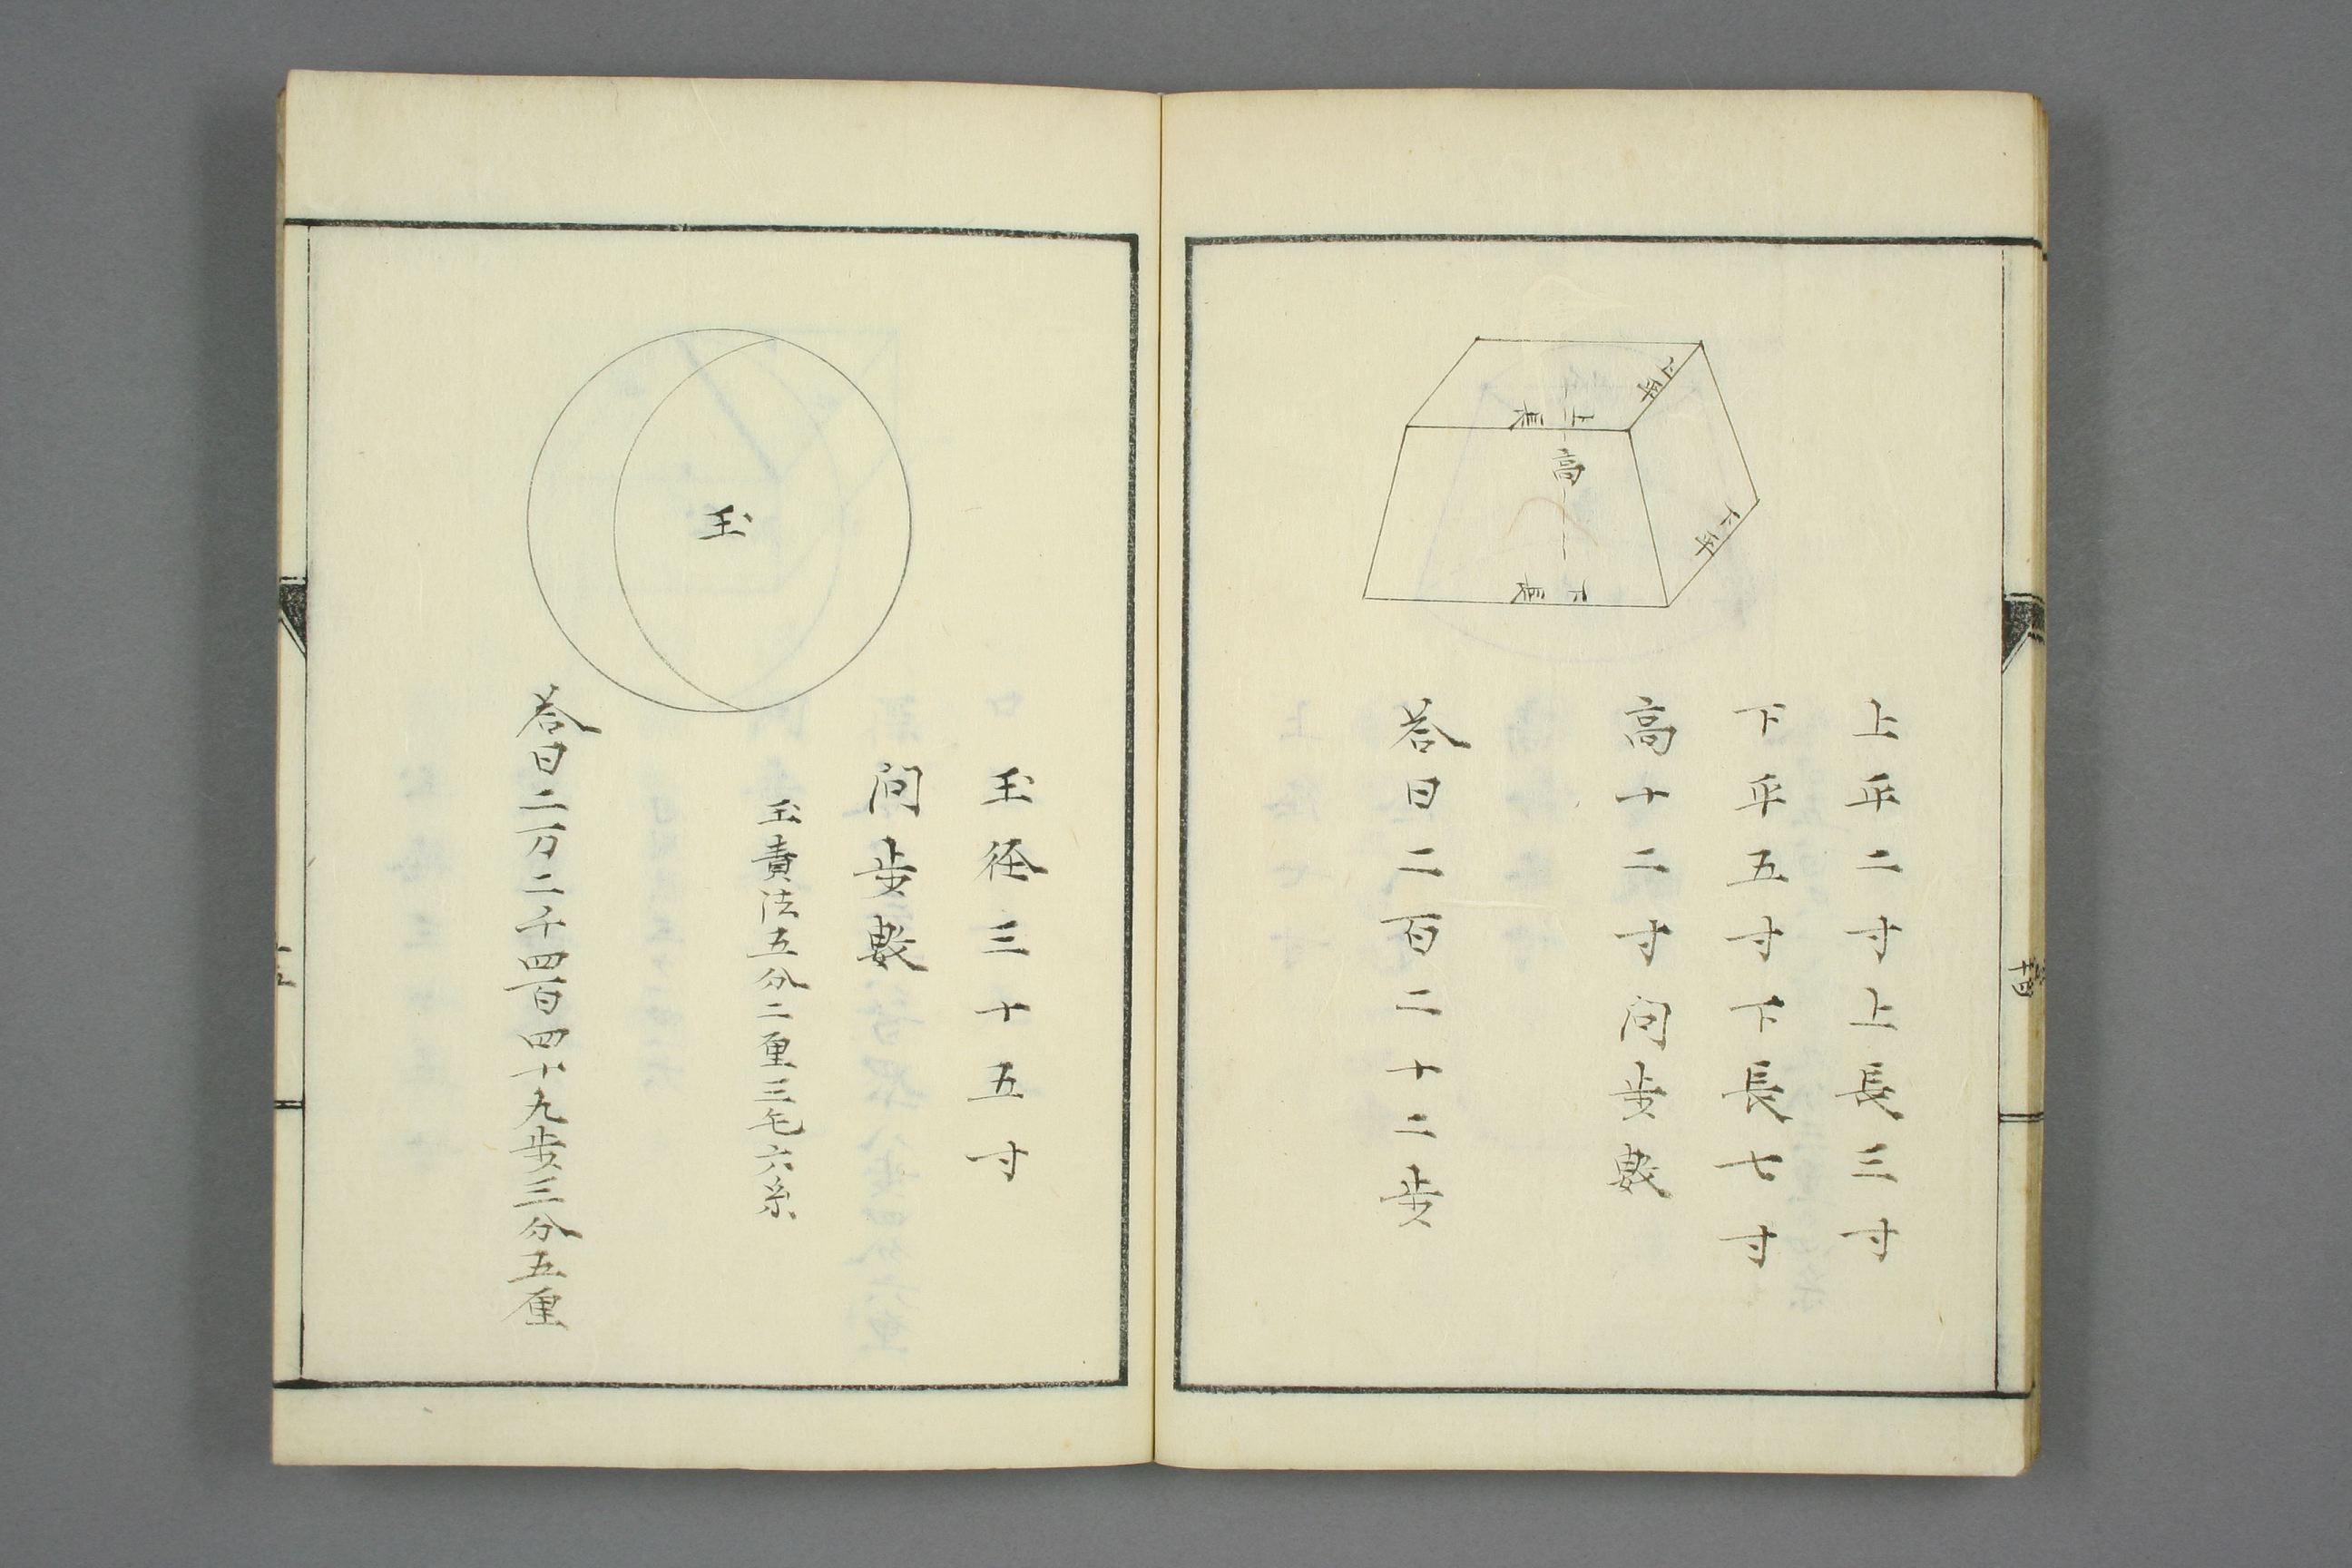 上平
上長
高
下平
下長
上平二寸上長三寸
下平五寸下長七寸
高十二寸問歩數
荅曰二百二十二歩
玉
玉径三十五寸
問歩數
玉責法五分二厘三毛六糸
荅曰二万二千四百四十九歩三分五厘